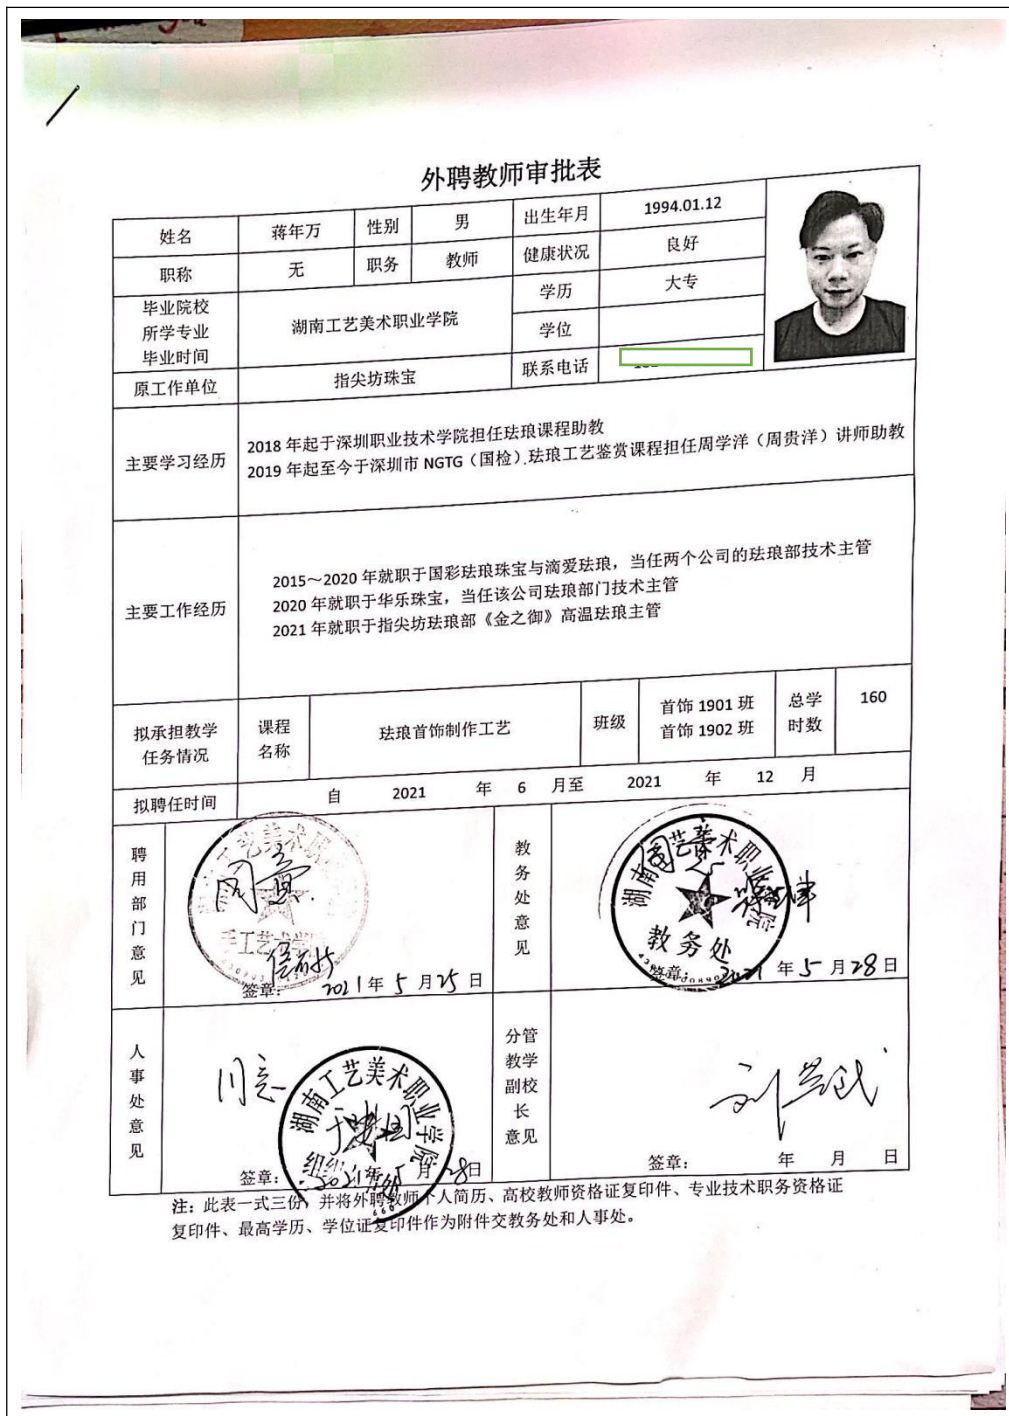 外聘教师审批表
姓名 蒋年万 性别 男 出生年月 1994.01.12
职称 无 职务 教师 健康状况 良好
毕业院校
所学专业
毕业时间
湖南工艺美术职业学院
学历 大专
学位
原工作单位 指尖坊珠宝 联系电话
主要学习经历
2018 年起于深圳职业技术学院担任珐琅课程助教
2019 年起至今于深圳市 NGTG（国检）.珐琅工艺鉴赏课程担任周学洋（周贵洋）讲师助教
主要工作经历
2015～2020 年就职于国彩珐琅珠宝与滴爱珐琅，当任两个公司的珐琅部技术主管
2020 年就职于华乐珠宝，当任该公司珐琅部门技术主管
2021 年就职于指尖坊珐琅部《金之御》高温珐琅主管
拟承担教学
任务情况
课程
名称
珐琅首饰制作工艺
班级
首饰 1901 班
首饰 1902 班
总学
时数
160
拟聘任时间 自 2021 年 6 月至 2021 年 12 月
聘用部门意见
同意
签章： 2021年 5 月 25 日
教务处意见
同意
湖南工艺美术职业学院
教务处
签章： 2021 年 5 月 28 日
人事处意见
同意
湖南工艺美术职业学院
签章： 2021年 5 月 28日
分管
教学
副校
长
意见
签章： 年 月 日
注：此表一式三份，并将外聘教师个人简历、高校教师资格证复印件、专业技术职务资格证
复印件、最高学历、学位证复印件作为附件交教务处和人事处。